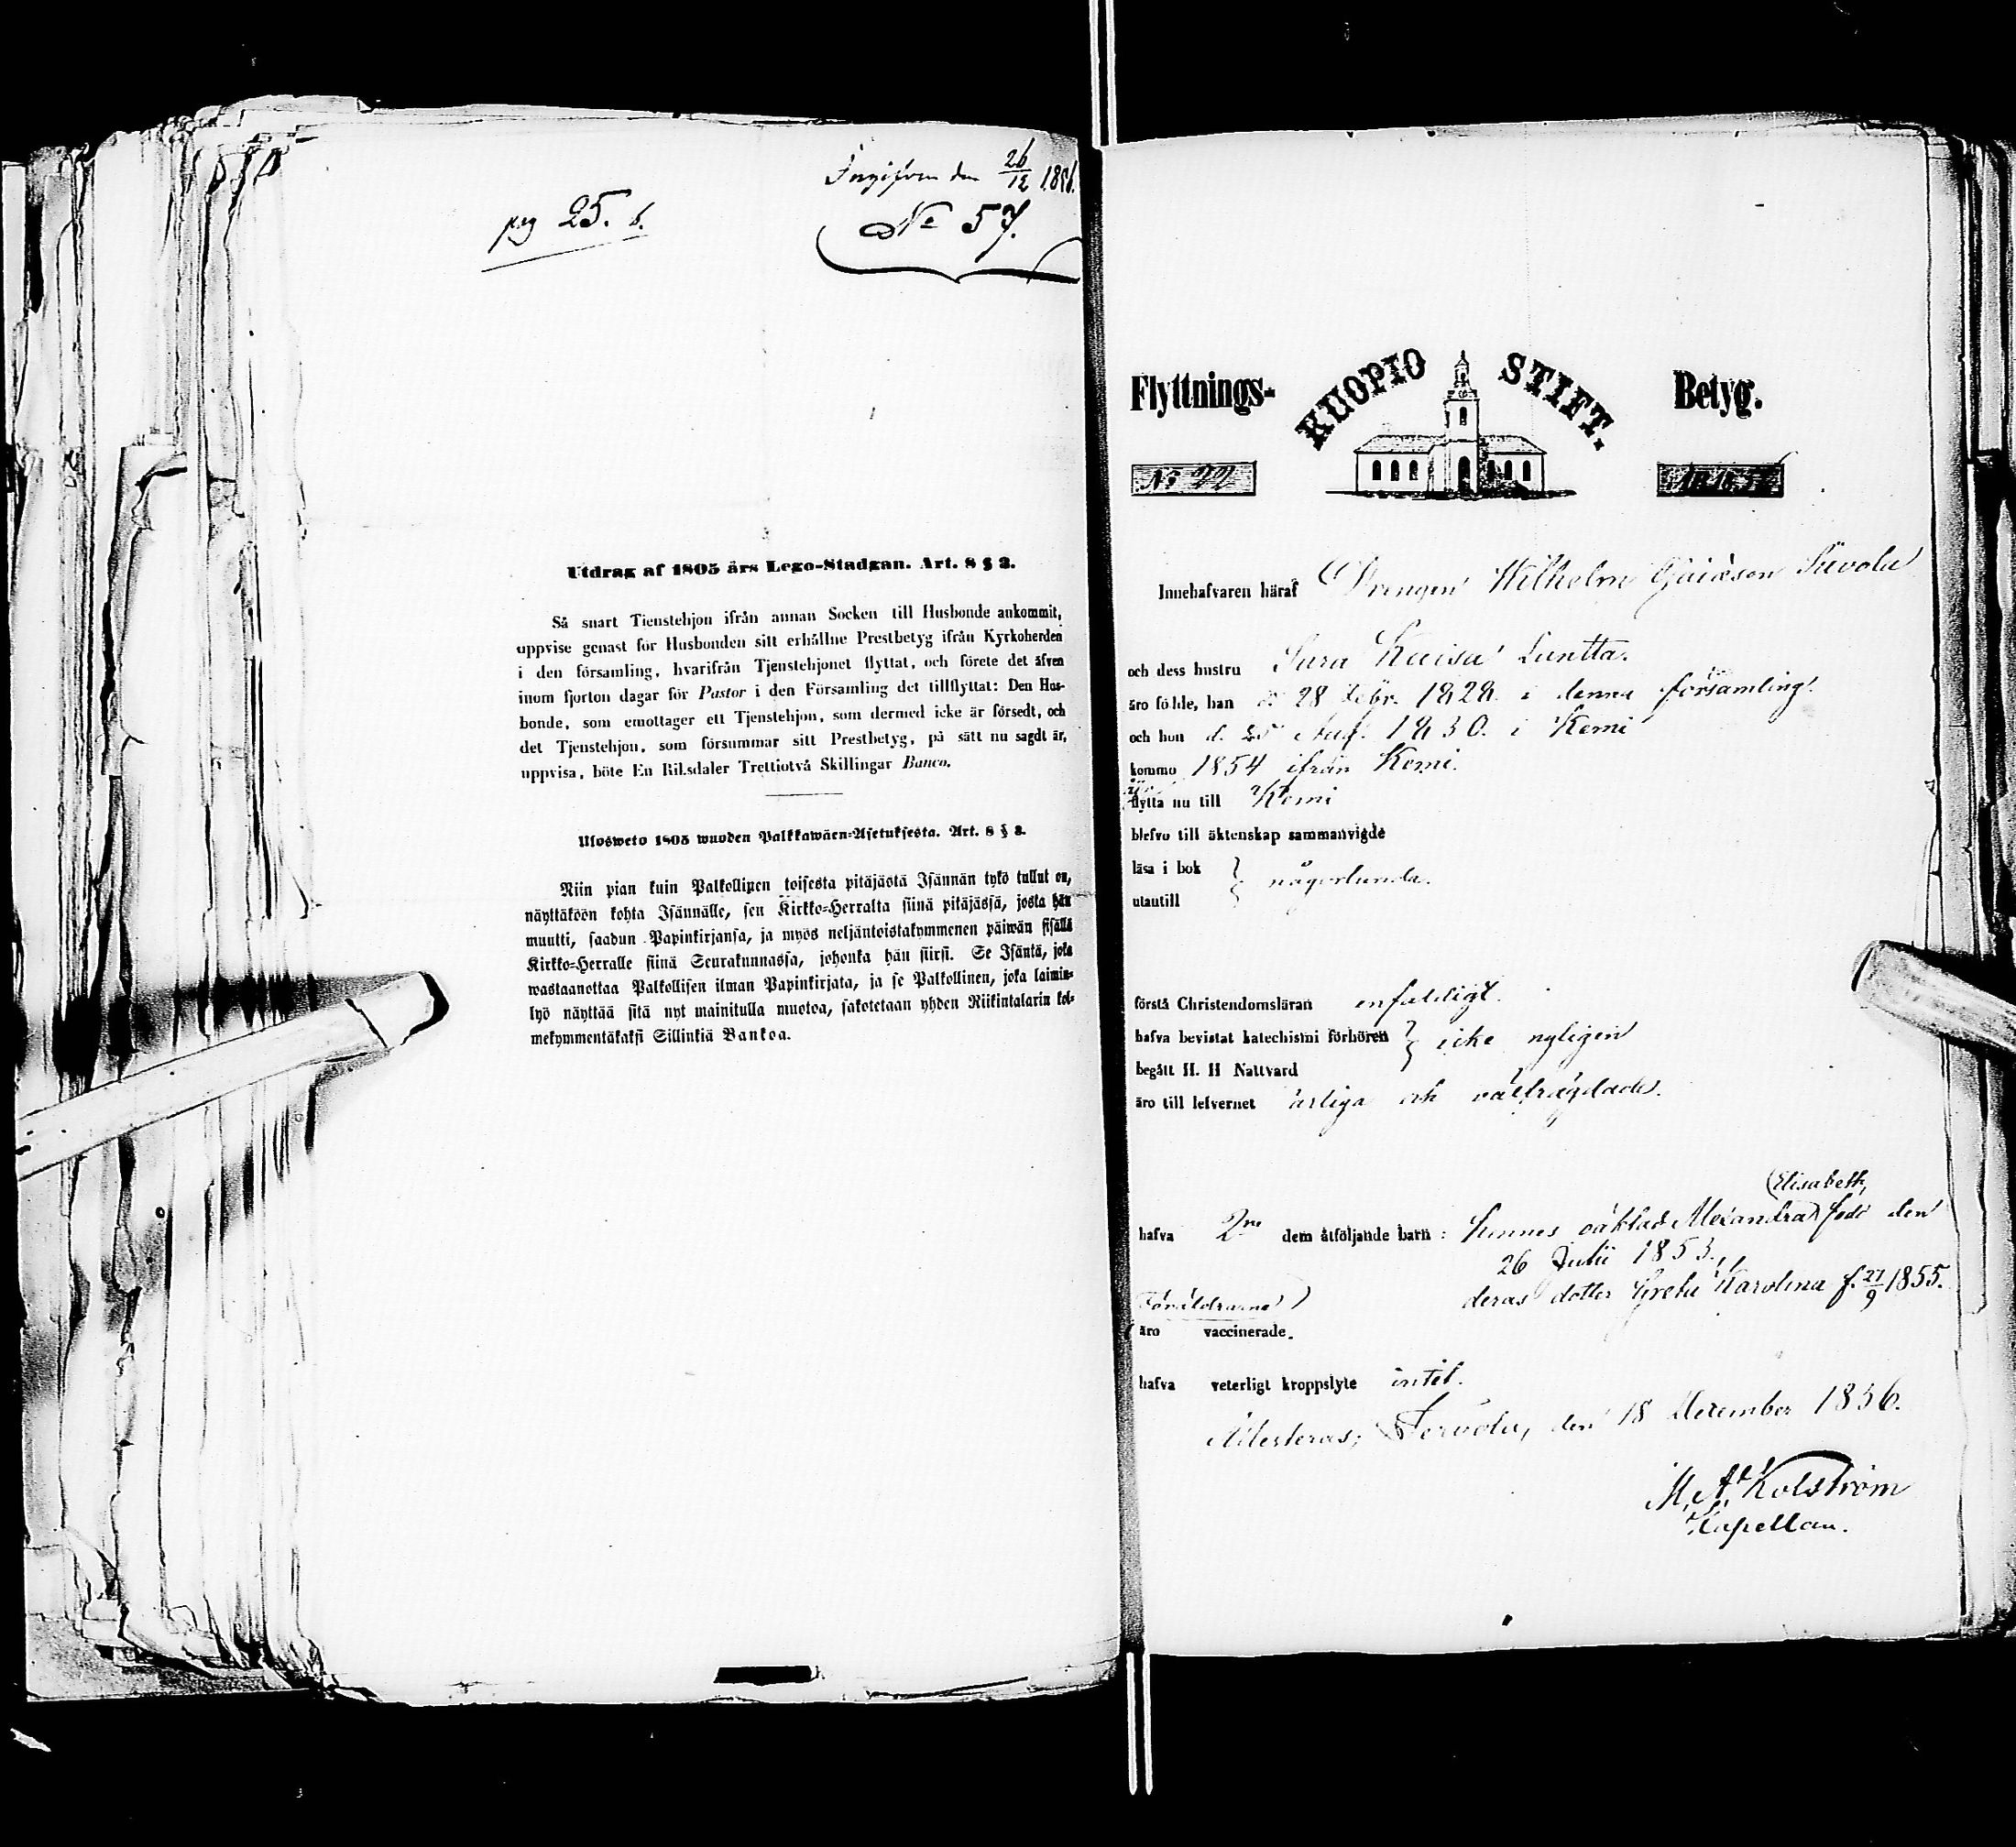 Ingifven den 26/12 1856.
pag 25. b.
No 57.
Utdrag af 1805 års Lego-Stadgan. Art. 8 § 3.
Så snart Tienstehjon ifrån annan Socken till Husbonde ankommit,
uppvise genast för Husbonden sitt erhållne Prestbetyg ifrån Kyrkoherden
i den församling, hvarifrån Tjenstehjonet flyttat, och förete det äfven
inom fjorton dagar för Pastor i den Församling det tillflyttat: Den Hus-
bonde, som emottager ett Tjenstehjon, som dermed icke är försedt, och
det Tjenstehjon, som försummar sitt Prestbetyg, på sätt nu sagdt är,
uppvisa, böte En Riksdaler Trettiotvå Skillingar Banco.
Ulosweto 1805 wuoden Palkkawäen-Asetuksesta. Art. 8 § 3.
Niin pian kuin Palkollinen toisesta pitäjästä Isännän tykö tullut on,
näyttäköön kohta Isännälle, sen Kirkko-Herralta siinä pitäjässä, josta hän
muutti, saadun Papinkirjansa, ja myös neljäntoistakymmenen päiwän sisällä
Kirkko-Herralle siinä Seurakunnassa, johonka hän siirsi. Se Isäntä, joka
wastaanottaa Palkollisen ilman Papinkirjata, ja se Palkollinen, joka laimin-
lyö näyttää sitä nyt mainitulla muotoa, sakotetaan yhden Riikintalarin kol-
mekymmentäkaksi Sillinkiä Bankoa.
Flyttnings- KUOPIO STIFT. Betyg.
No 22
Innehafvaren häraf Drengen Wilhelm
och dess hustru Sara Kaisa Luntta.
äro födde, han d. 28 Febr. 1828 i denna församling.
och hon d. 25 Aug. 1830. i Kemi
kommo 1854 ifrån Kemi.
flytta nu till Kemi
blefvo till äktenskap sammanvigde
läsa i bok
någorlunda.
utantill
förstå Christendomsläran enfaldigt.
hafva bevistat katechismi förhören
icke nyligen
begått H. H Nattvard
äro till lefvernet ärliga och välfrägdade.
Elisabeth,
hafva 2ne dem åtföljande barn: hennes oäkta Alexandra född den
26 Julii 1853.,
deras dotter Greta Karolina f. 27/9 1855.
Föräldrarne
äro vaccinerade.
hafva veterligt kroppslyte intet.
Attesteras; Tervola, den 18 December 1856.
M. A. Kolström
Kapellan.